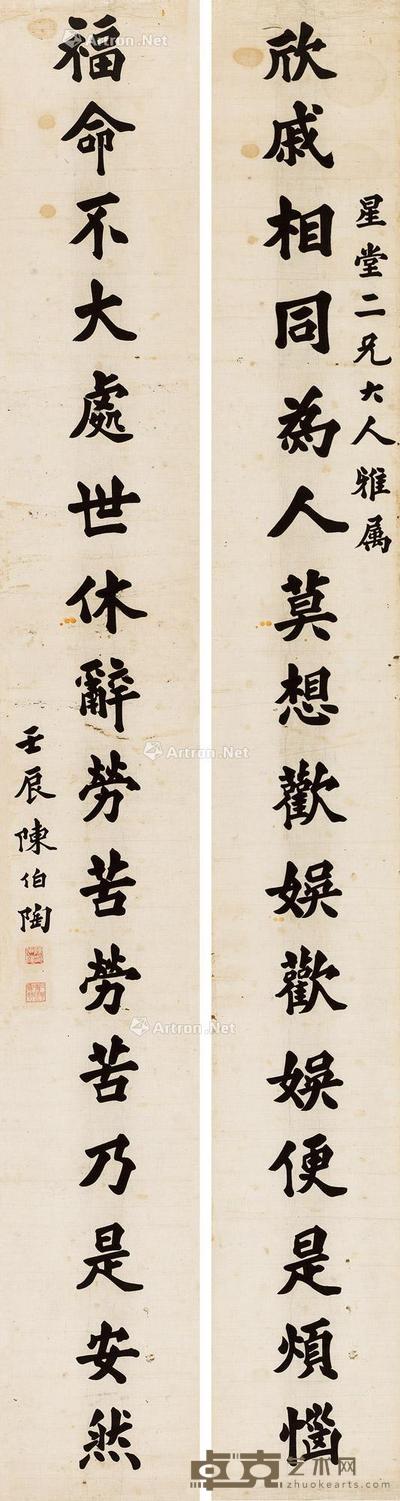 星堂二兄大人雅属
欣戚相同為人莫想歡娛歡娛便是煩惱
福命不大處世休辭勞苦勞苦乃是安然
壬辰陳伯陶
Artron.Net
Artron.Net
Artron.Net
Artron.Net
Artron.Net
卓克艺术网
zhuokearts.com